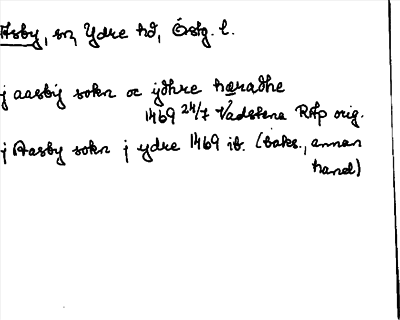 Asby, sn, Ydre hd, Östg. l.
j aasby sokn oc ydhre hæradhe
1469 24/7 Vadstena RAp orig.
j Aasby sokn j ydre 1469 ib. (baks., annan
hand)